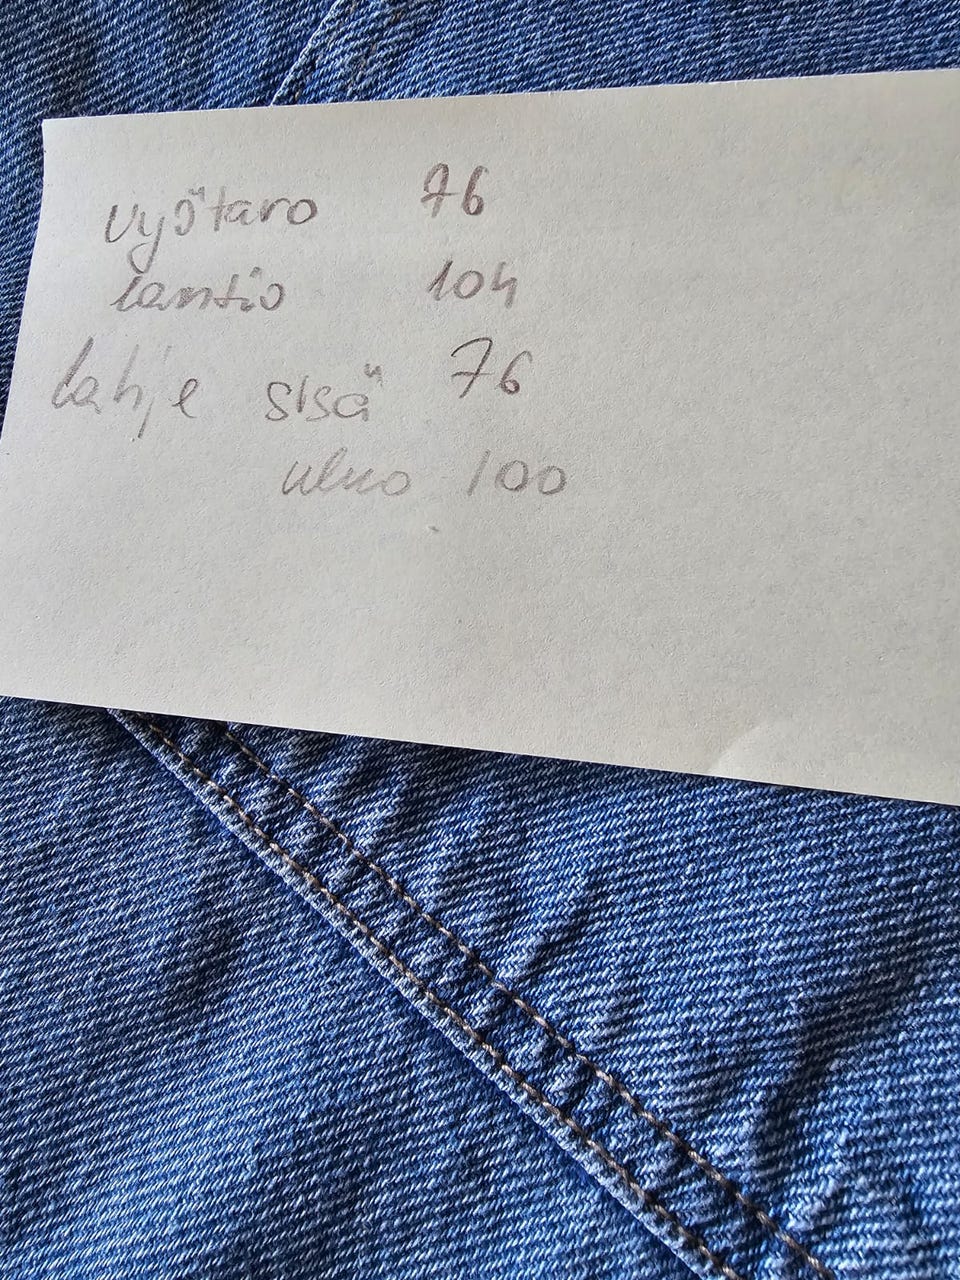 vyötaro 76
lantio 104
lahje sisä 76
ulko 100